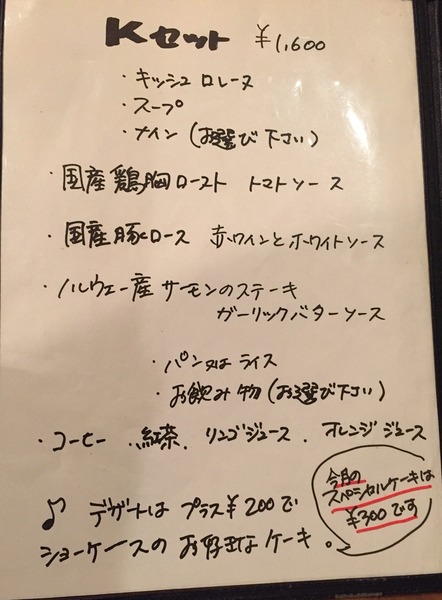 Kセット ¥1,600
・キッシュロレーヌ
・スープ
・メイン(お選び下さい)
・国産鶏胸ロースト トマトソース
・国産豚ヒロース 赤ワインとホワイトソース
・ノルウェー産サーモンのステーキ
ガーリックバターソース
・パン又はライス
・お飲み物(お選び下さい)
・コーヒー ．紅茶 ．リンゴジュース ．オレンジジュース
♪ デザートは プラス¥200で
ショーケースの お好きなケーキ。
今月の
スペシャルケーキは
¥300です